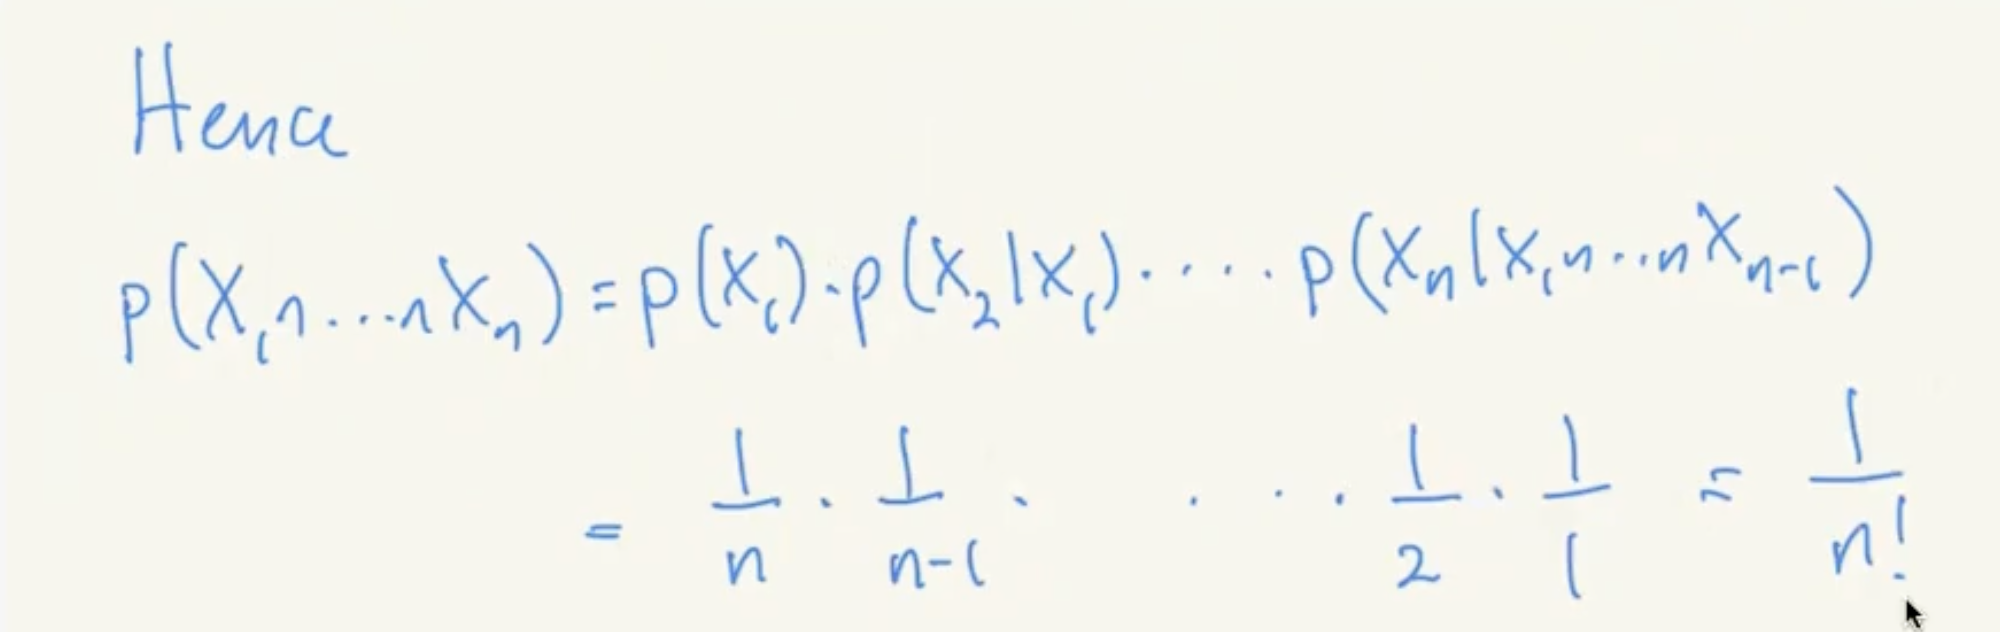 Hence
p(X₁∩....∩Xₙ) = p(X₁)·p(X₂|X₁)·....p(Xₙ|X₁∩...∩Xₙ₋₁)
= 1/n · 1/(n-1) · ... · 1/2 · 1/1 = 1/n!